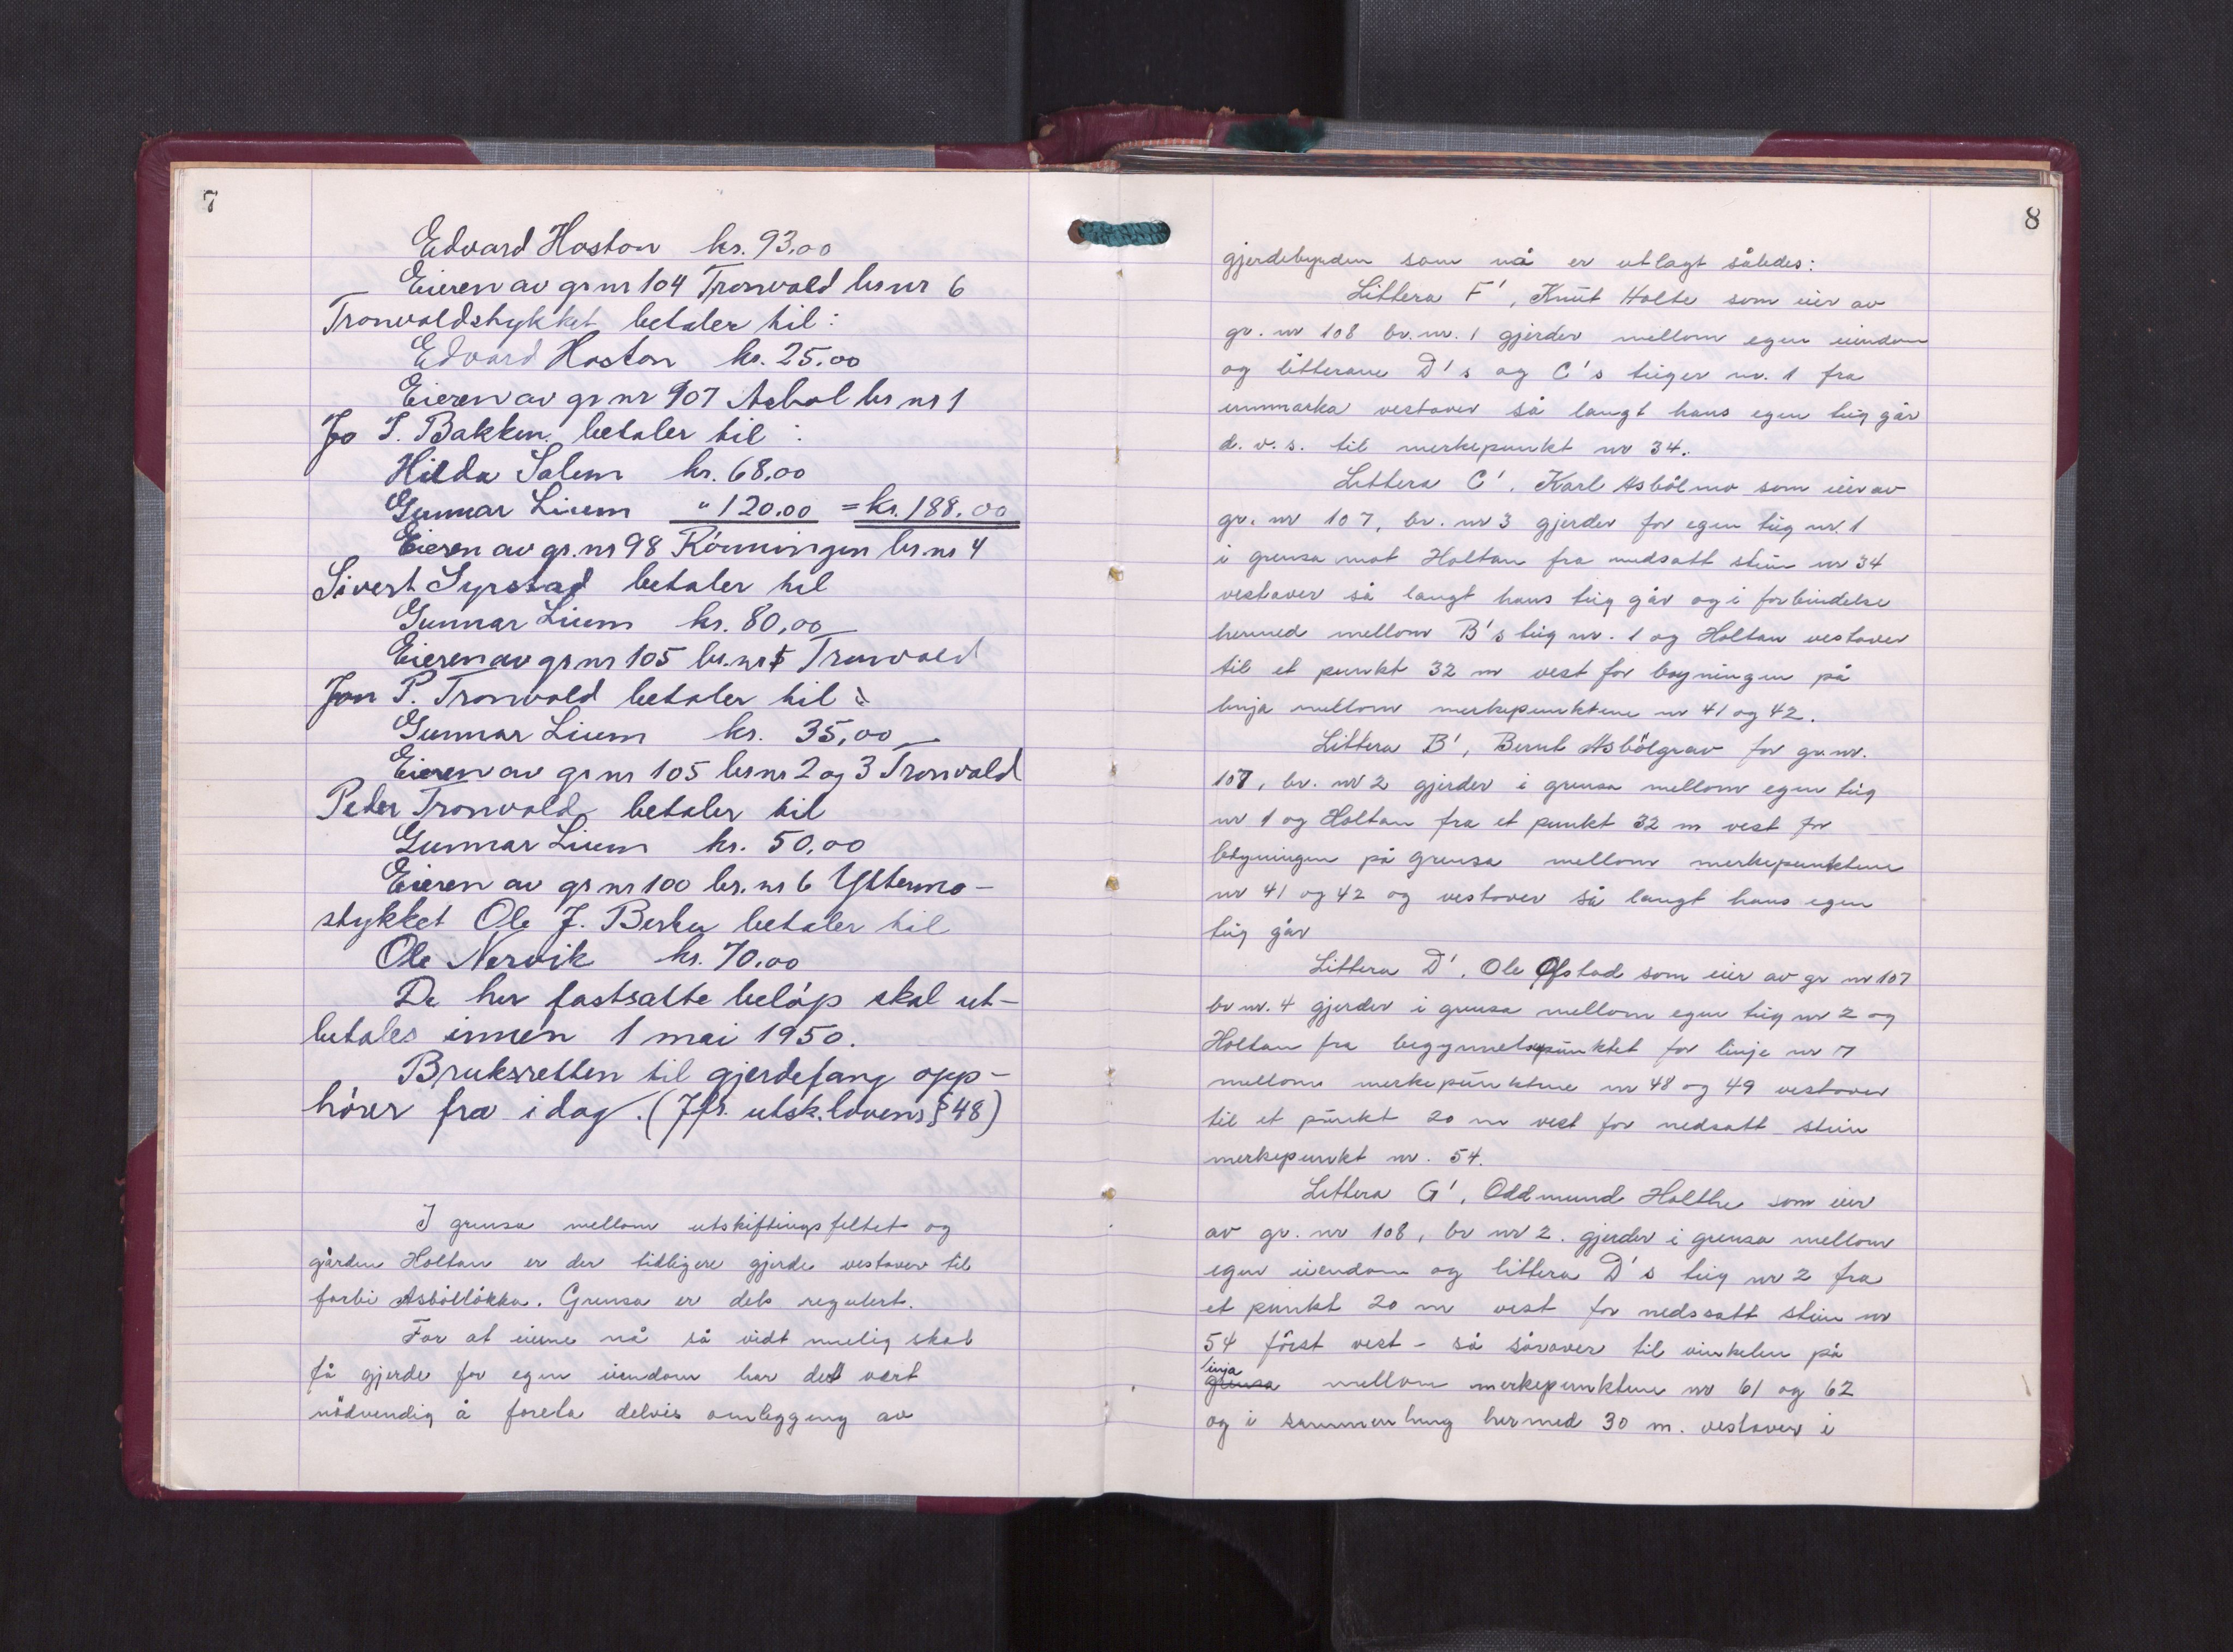 7
Edvard Hoston kr. 93.00
Eieren av grnr 104 Tronvold brnr 6
Tronvoldstykket betaler til:
Edvard Hoston kr. 25.00
Eieren av grnr 107 Asbøl brnr 1
Jo I. Bakken betaler til :
Hilda Solem kr. 68.00
Gunnar Lium " 120.00 = kr. 188.00
Eieren av gr.nr 98 Rönningen br.nr 4
Sivert Syrstad betaler til
Gunnar Lium kr. 80,00
Eieren av grnr 105 br.nr 5 Tronvold
Jon P. Tronvold betaler til :
Gunnar Lium kr. 35,00
Eieren av grnr 105 brnr 2 og 3 Tronvold
Peder Tronvold betaler til
Gunnar Lium kr. 50.00
Eieren av grnr 100 br.nr 6 Yttermo-
stykket Ole J. Berbu betaler til
Ole Nervik kr. 70.00
De her fastsatte beløp skal ut-
betales innen 1 mai 1950.
Bruksretten til gjerdefang opp-
hører fra idag. (Jfr. utsk.lovens § 48)
I grensa mellom utskiftingsfeltet og
gården Holtan er der tidligere gjerde vestover til
forbi Asböllökka. Grensa er dels regulert.
For at eierne nå så vidt mulig skal
få gjerde for egen eiendom har det vært
nödvendig å foreta delvis omlegging av
8
gjerdebyrden som nå er utlagt således:
Littera F', Knut Holte som eier av
gr. nr 108 br.nr. 1 gjerder mellom egen eiendom
og litterane D's og C's teiger nr. 1 fra
innmarka vestover så langt hans egen teig går
d.v.s. til merkepunkt nr 34.
Littera C'. Karl Asbölmo som eier av
gr. nr 107, br. nr 3 gjerder for egen teig nr. 1
i grensa mot Holtan fra nedsatt stein nr 34
vestover så langt hans teig går og i forbindelse
hermed mellom B's teig nr. 1 og Holtan vestover
til et punkt 32 m vest for bøyningen på
linja mellom merkepunktene nr 41 og 42.
Littera B', Bernt Asbölgrav for gr.nr.
107, br. nr 2 gjerder i grensa mellom egen teig
nr 1 og Holtan fra et punkt 32 m vest for
bøyningen på grensa mellom merkepunktene
nr 41 og 42 og vestover så langt hans egen
teig går
Littera D'. Ole Ofstad som eier av gr nr 107
br nr. 4 gjerder i grensa mellom egen teig nr 2 og
Holtan fra begynnelsepunktet for linje nr 7
mellom merkepunktene nr 48 og 49 vestover
til et punkt 20 m vest for nedsatt stein
merkepunkt nr. 54.
Littera G', Oddmund Holthe som eier
av gr. nr 108, br nr 2. gjerder i grensa mellom
egen eiendom og littera D's teig nr 2 fra
et punkt 20 m vest for nedssatt stein nr
54 först vest - så sörover til vinkelen på
linja
grensa mellom merkepunktene nr 61 og 62
og i sammenheng hermed 30 m. vestover i